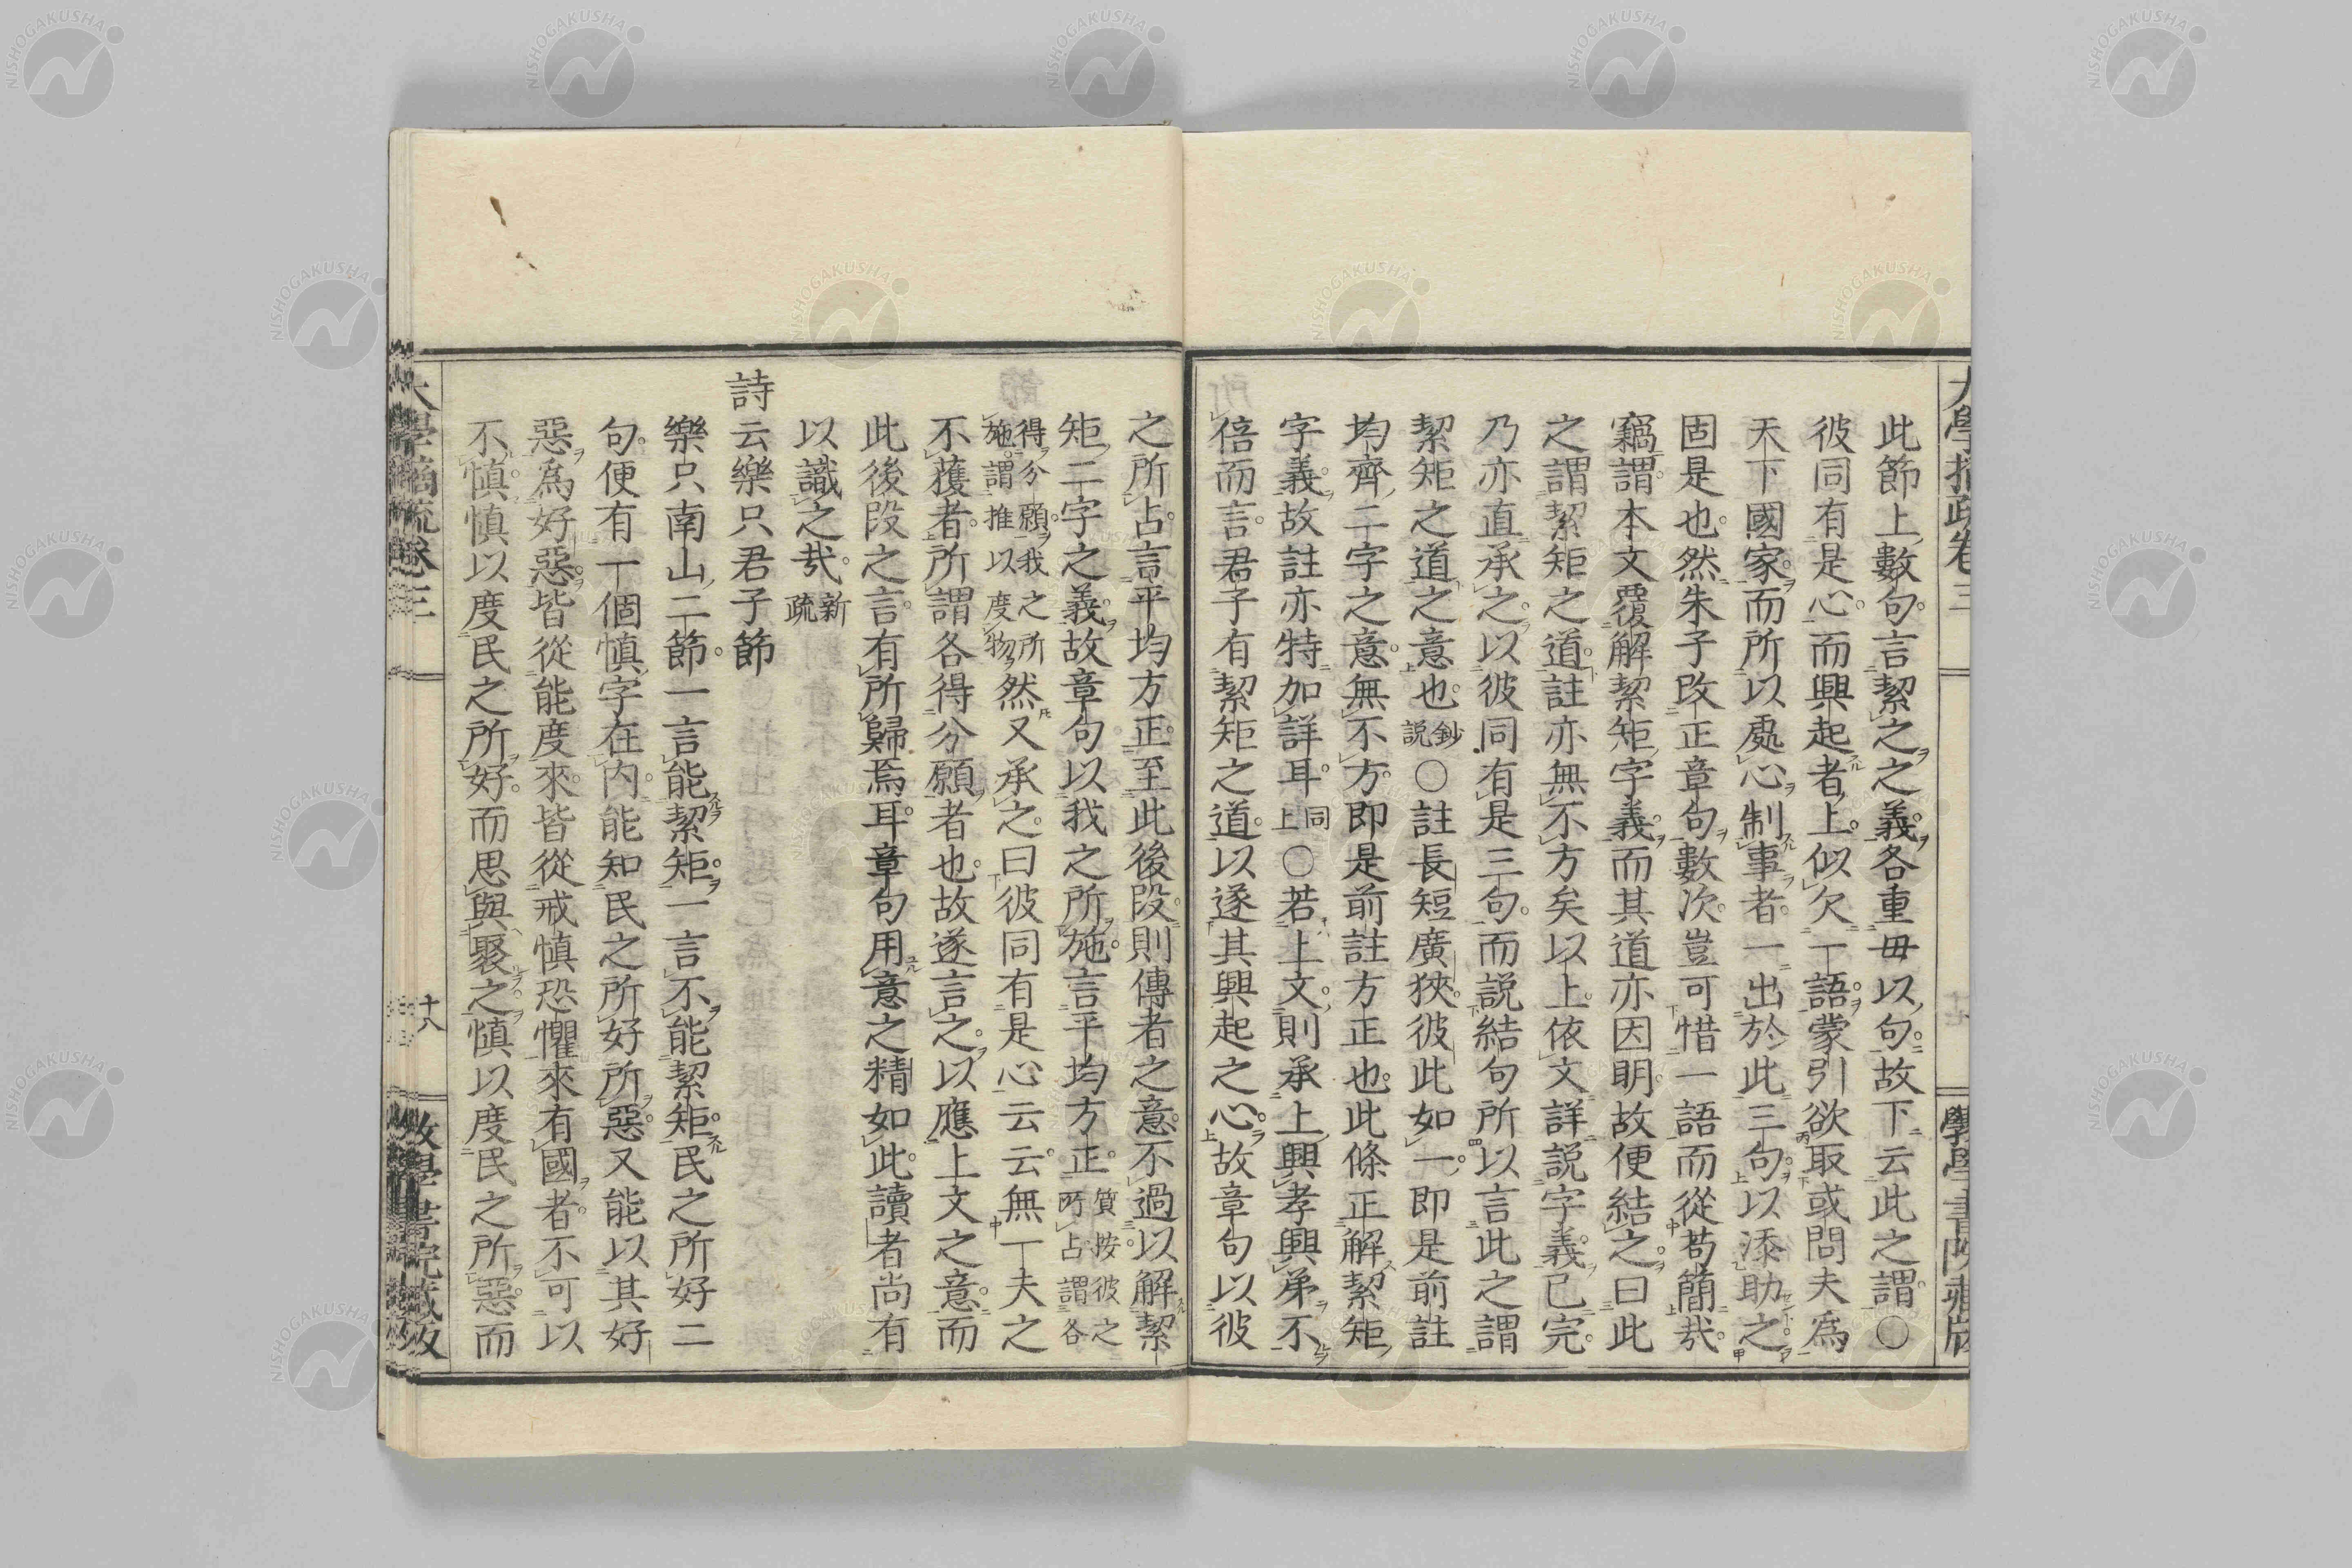 此節上數句言絜之之義各重毋以句故下云此之謂○
彼同有是心而興起者上似欠一語蒙引欲取或問夫爲
天下國家而所以處心制事者一出於此三句以添助之
固是也然朱子改正章句數次豈可惜一語而從苟簡哉
竊謂本文覆解絜矩字義而其道亦因明故便結之曰此
之謂絜矩之道註亦無不方矣以上依文詳説字義已完
乃亦直承之以彼同有是三句而説結句所以言此之謂
絜矩之道之意也鈔説○註長短廣狹彼此如一即是前註
均齊二字之意無不方即是前註方正也此條正解絜矩
字義故註亦特加詳耳同上○若上文則承上興孝興弟不
倍而言君子有絜矩之道以遂其興起之心故章句以彼
之所占言平均方正至此後段則傳者之意不過以解絜
矩二字之義故章句以我之所施言平均方正質按彼之所占謂各
得分願我之所施謂推以度物然又承之曰彼同有是心云云無一夫之
不獲者所謂各得分願者也故遂言之以應上文之意而
此後段之言有所歸焉耳章句用意之精如此讀者尚有
以識之哉新疏
詩云樂只君子節
樂只南山二節一言能絜矩一言不能絜矩民之所好二
句便有一個慎字在内能知民之所好所惡又能以其好
惡爲好惡皆從能度來皆從戒慎恐懼來有國者不可以
不慎慎以度民之所好而思與聚之慎以度民之所惡而
十八